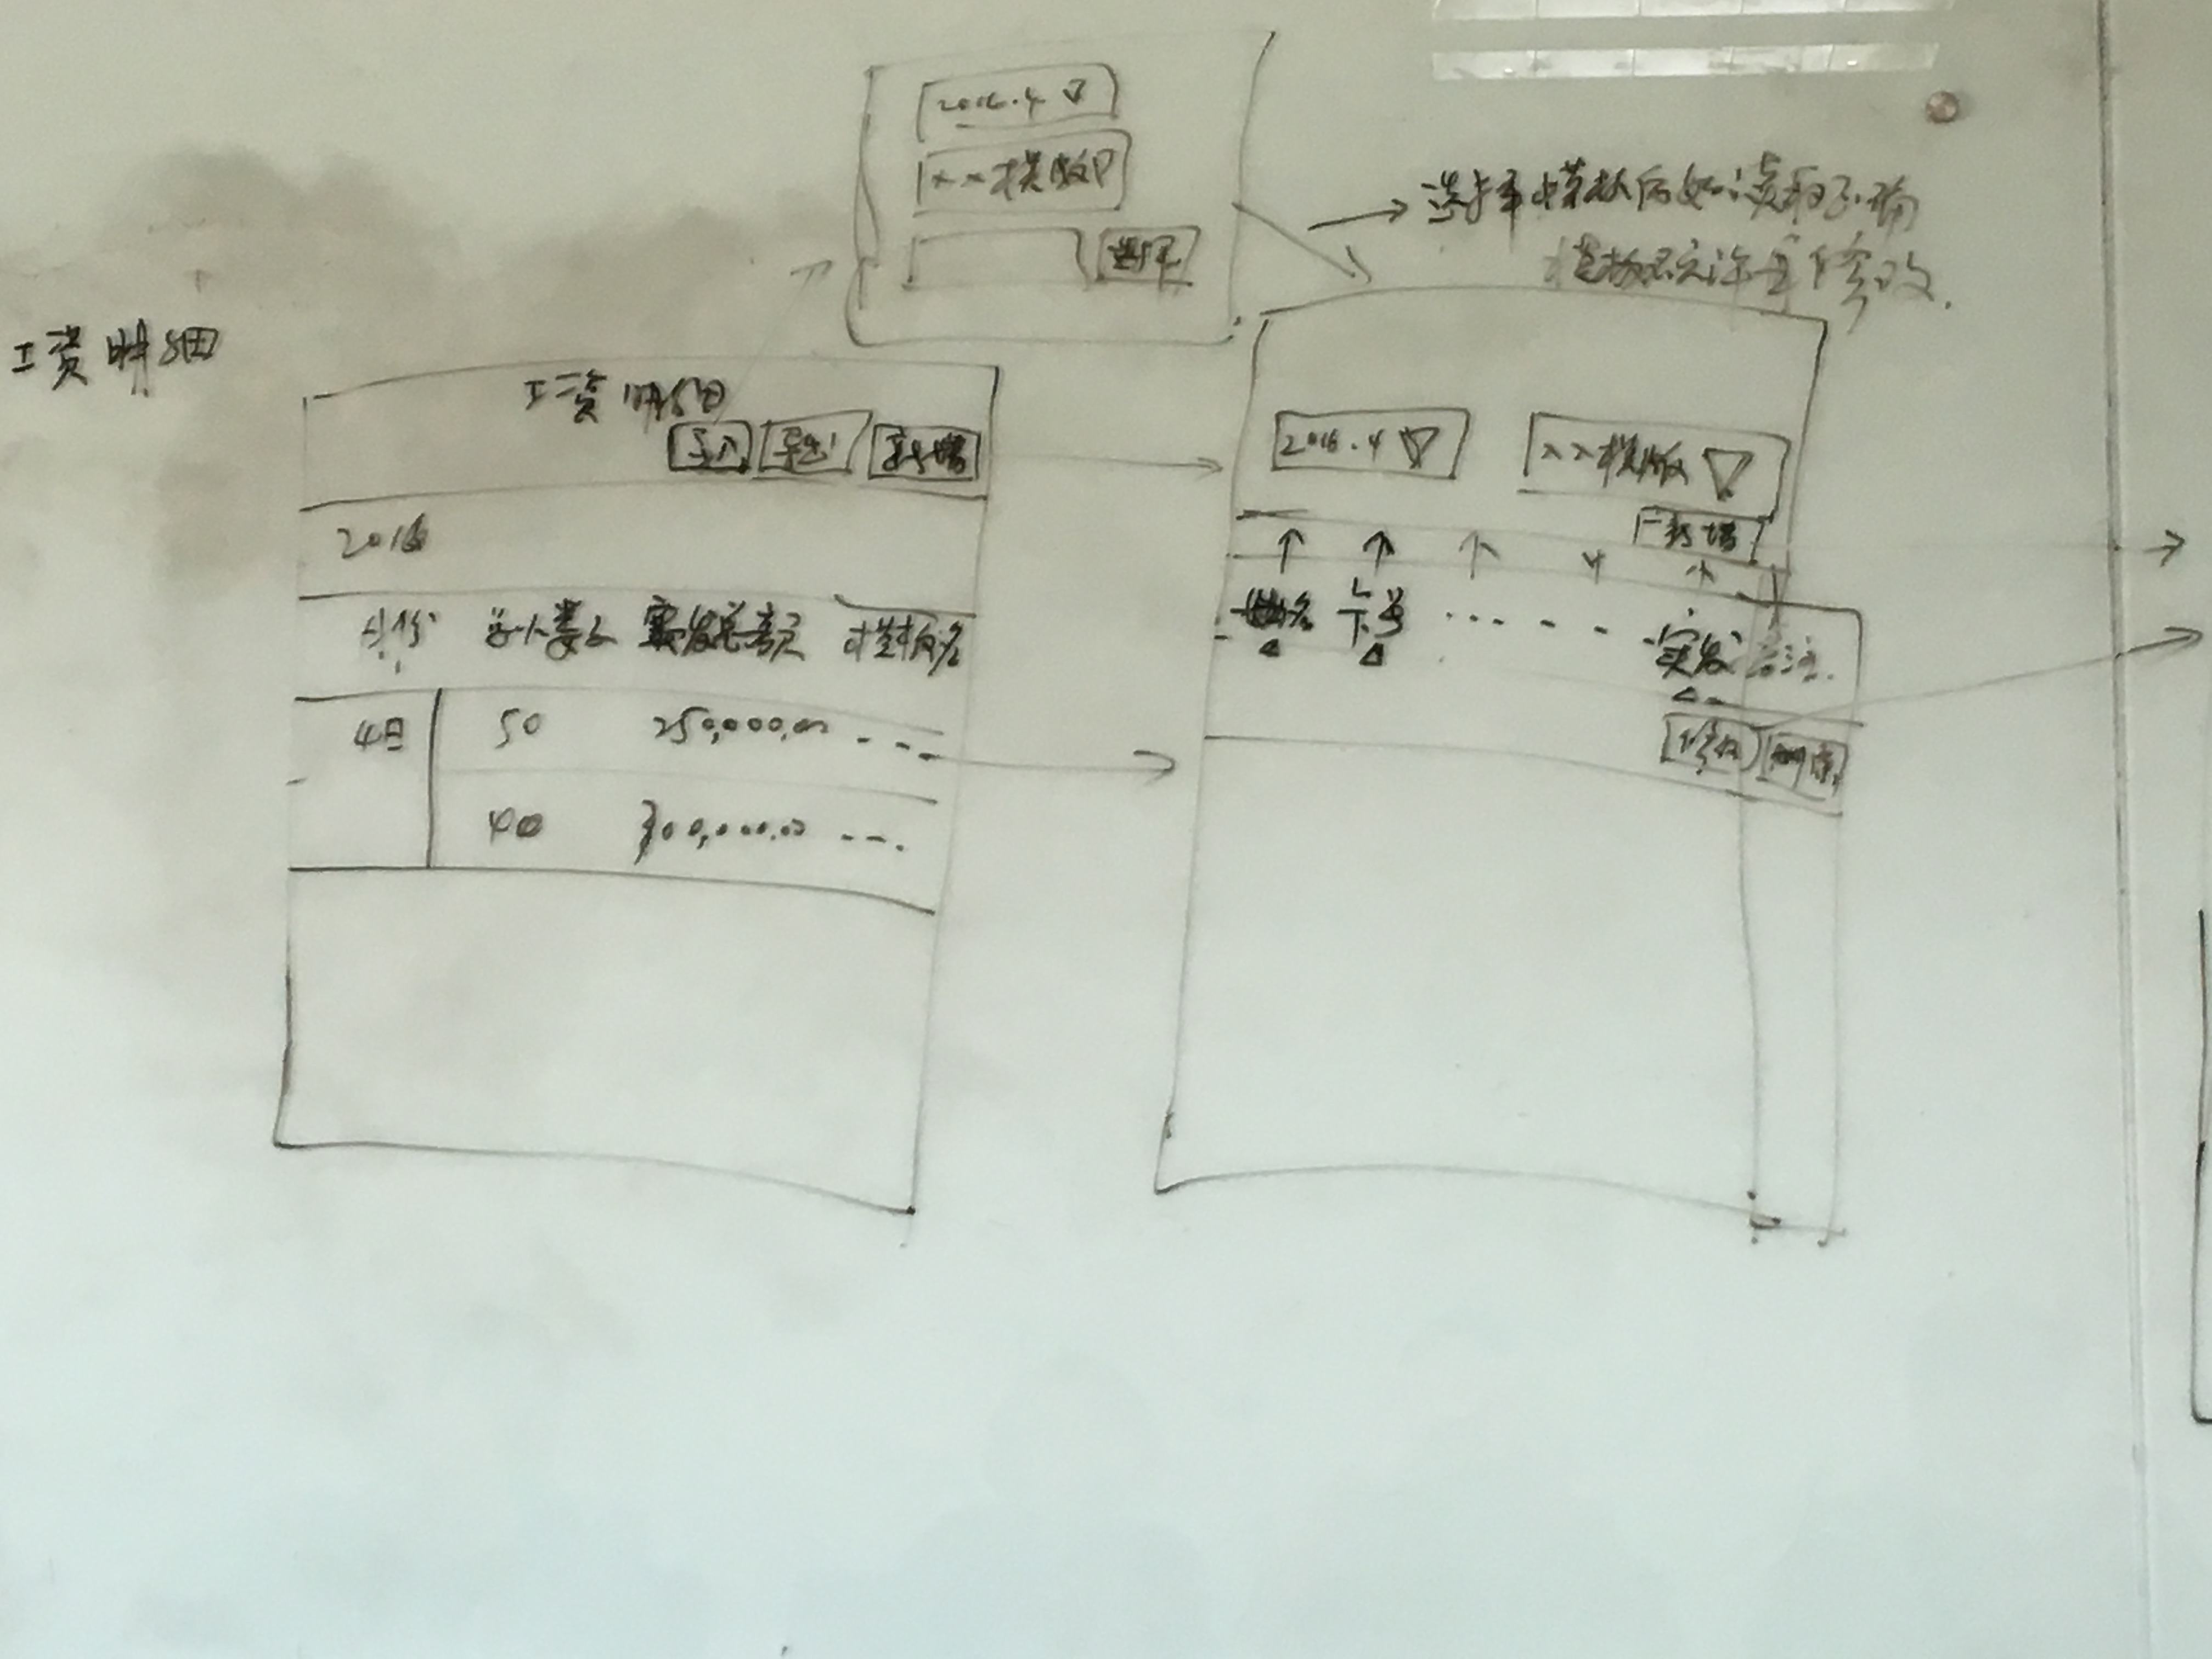 2016.4
××模版
选择
选择模板后如读取不确
模板不允许再修改.
工资明细
工资明细
导入 导出 新增
2016
月份 实发总额 模板名
4月 50 250,000.00 ---
40 300,000.00 ---.
2016.4 ××模版
新增
姓名 卡号 ...--- 实发 备注
修改 删除